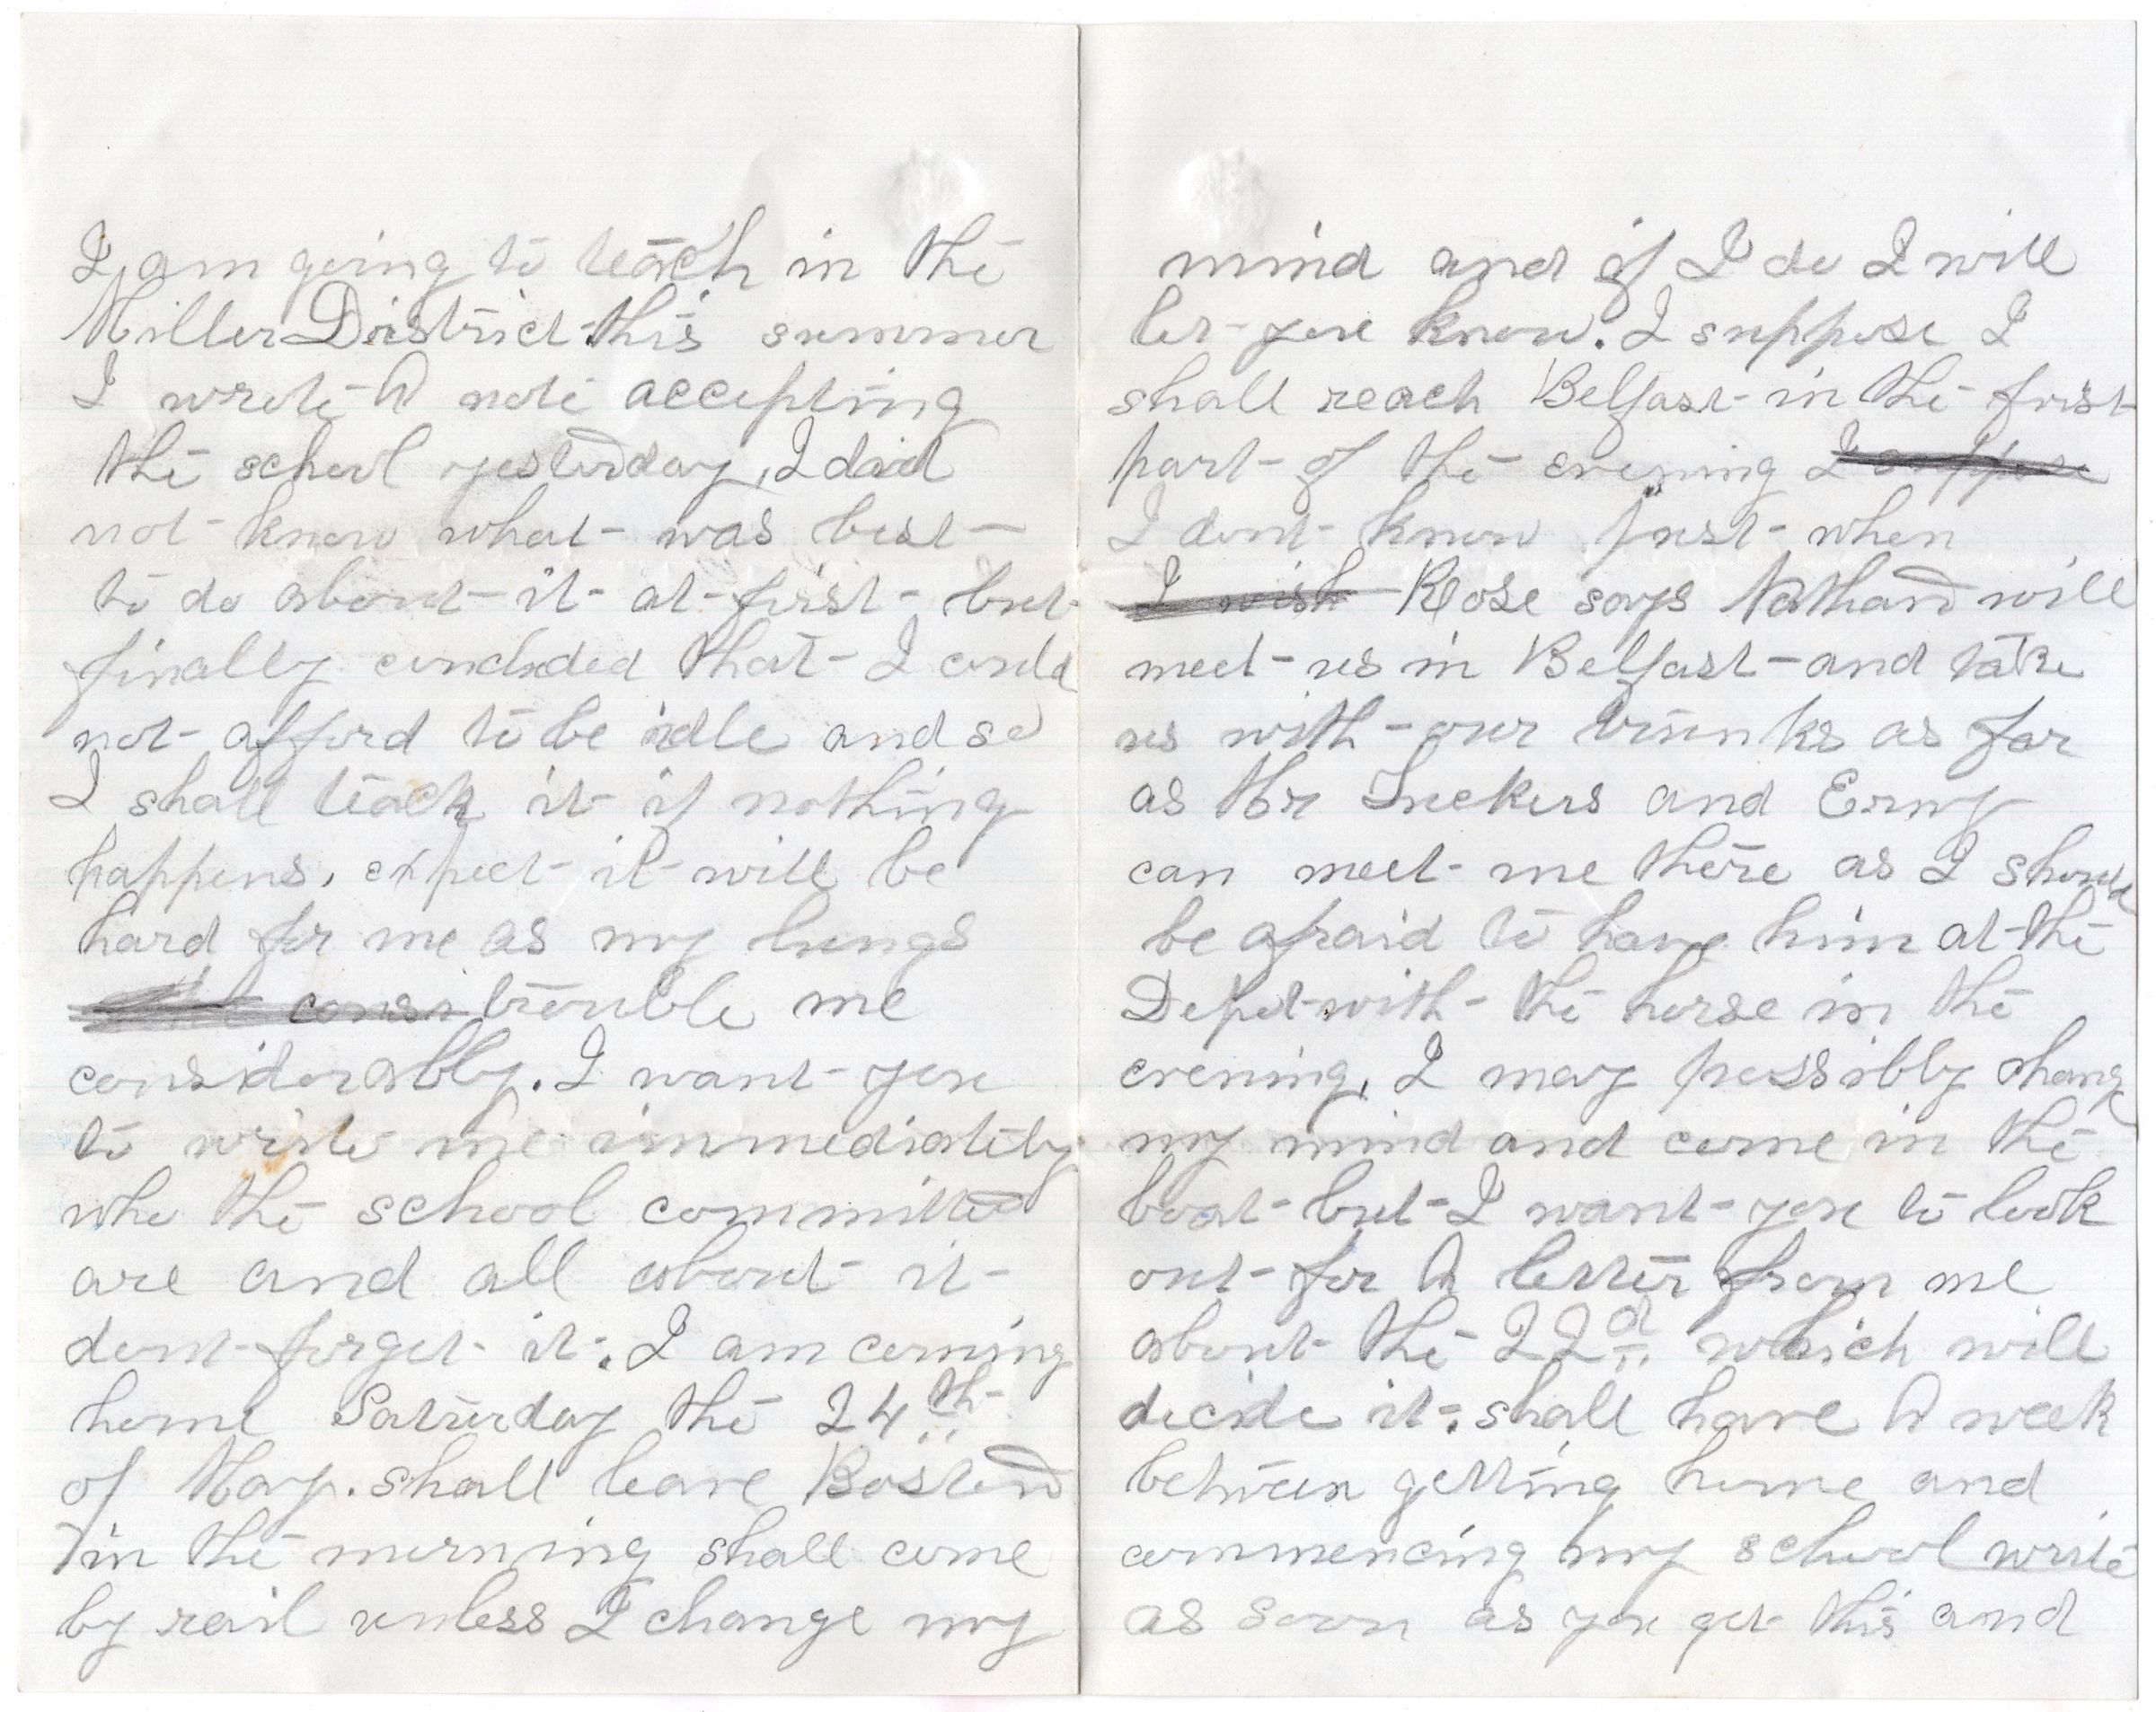 I am going to teach in the
Miller District this summer
I wrote A note accepting
the school yesterday, I did
not know what was best
to do about it at first but
finally concluded that I could
not afford to be idle and so
I shall teach it if nothing
happens, expect it will be
hard for me as my lungs
consi trouble me
considerably. I want you
to write me immediately
who the school committee
are and all about it
dont forget it. I am coming
home Saturday the 24th
of May. shall leave Boston
in the morning shall come
by rail unless I change my
mind and if I do I will
let you know. I suppose I
shall reach Belfast in the first
part of the evening I suppose
I dont know just when
I wish Rose says Nathan will
meet us in Belfast and take
us with our trunks as far
as Mr Tuckers and Erny
can meet me there as I should
be afraid to have him at the
Depot with the horse in the
evening, I may possibly change
my mind and come in the
boat but I want you to look
out for A letter from me
about the 22d which will
decide it. shall have A week
between getting home and
commencing my school write
as soon as you get this and